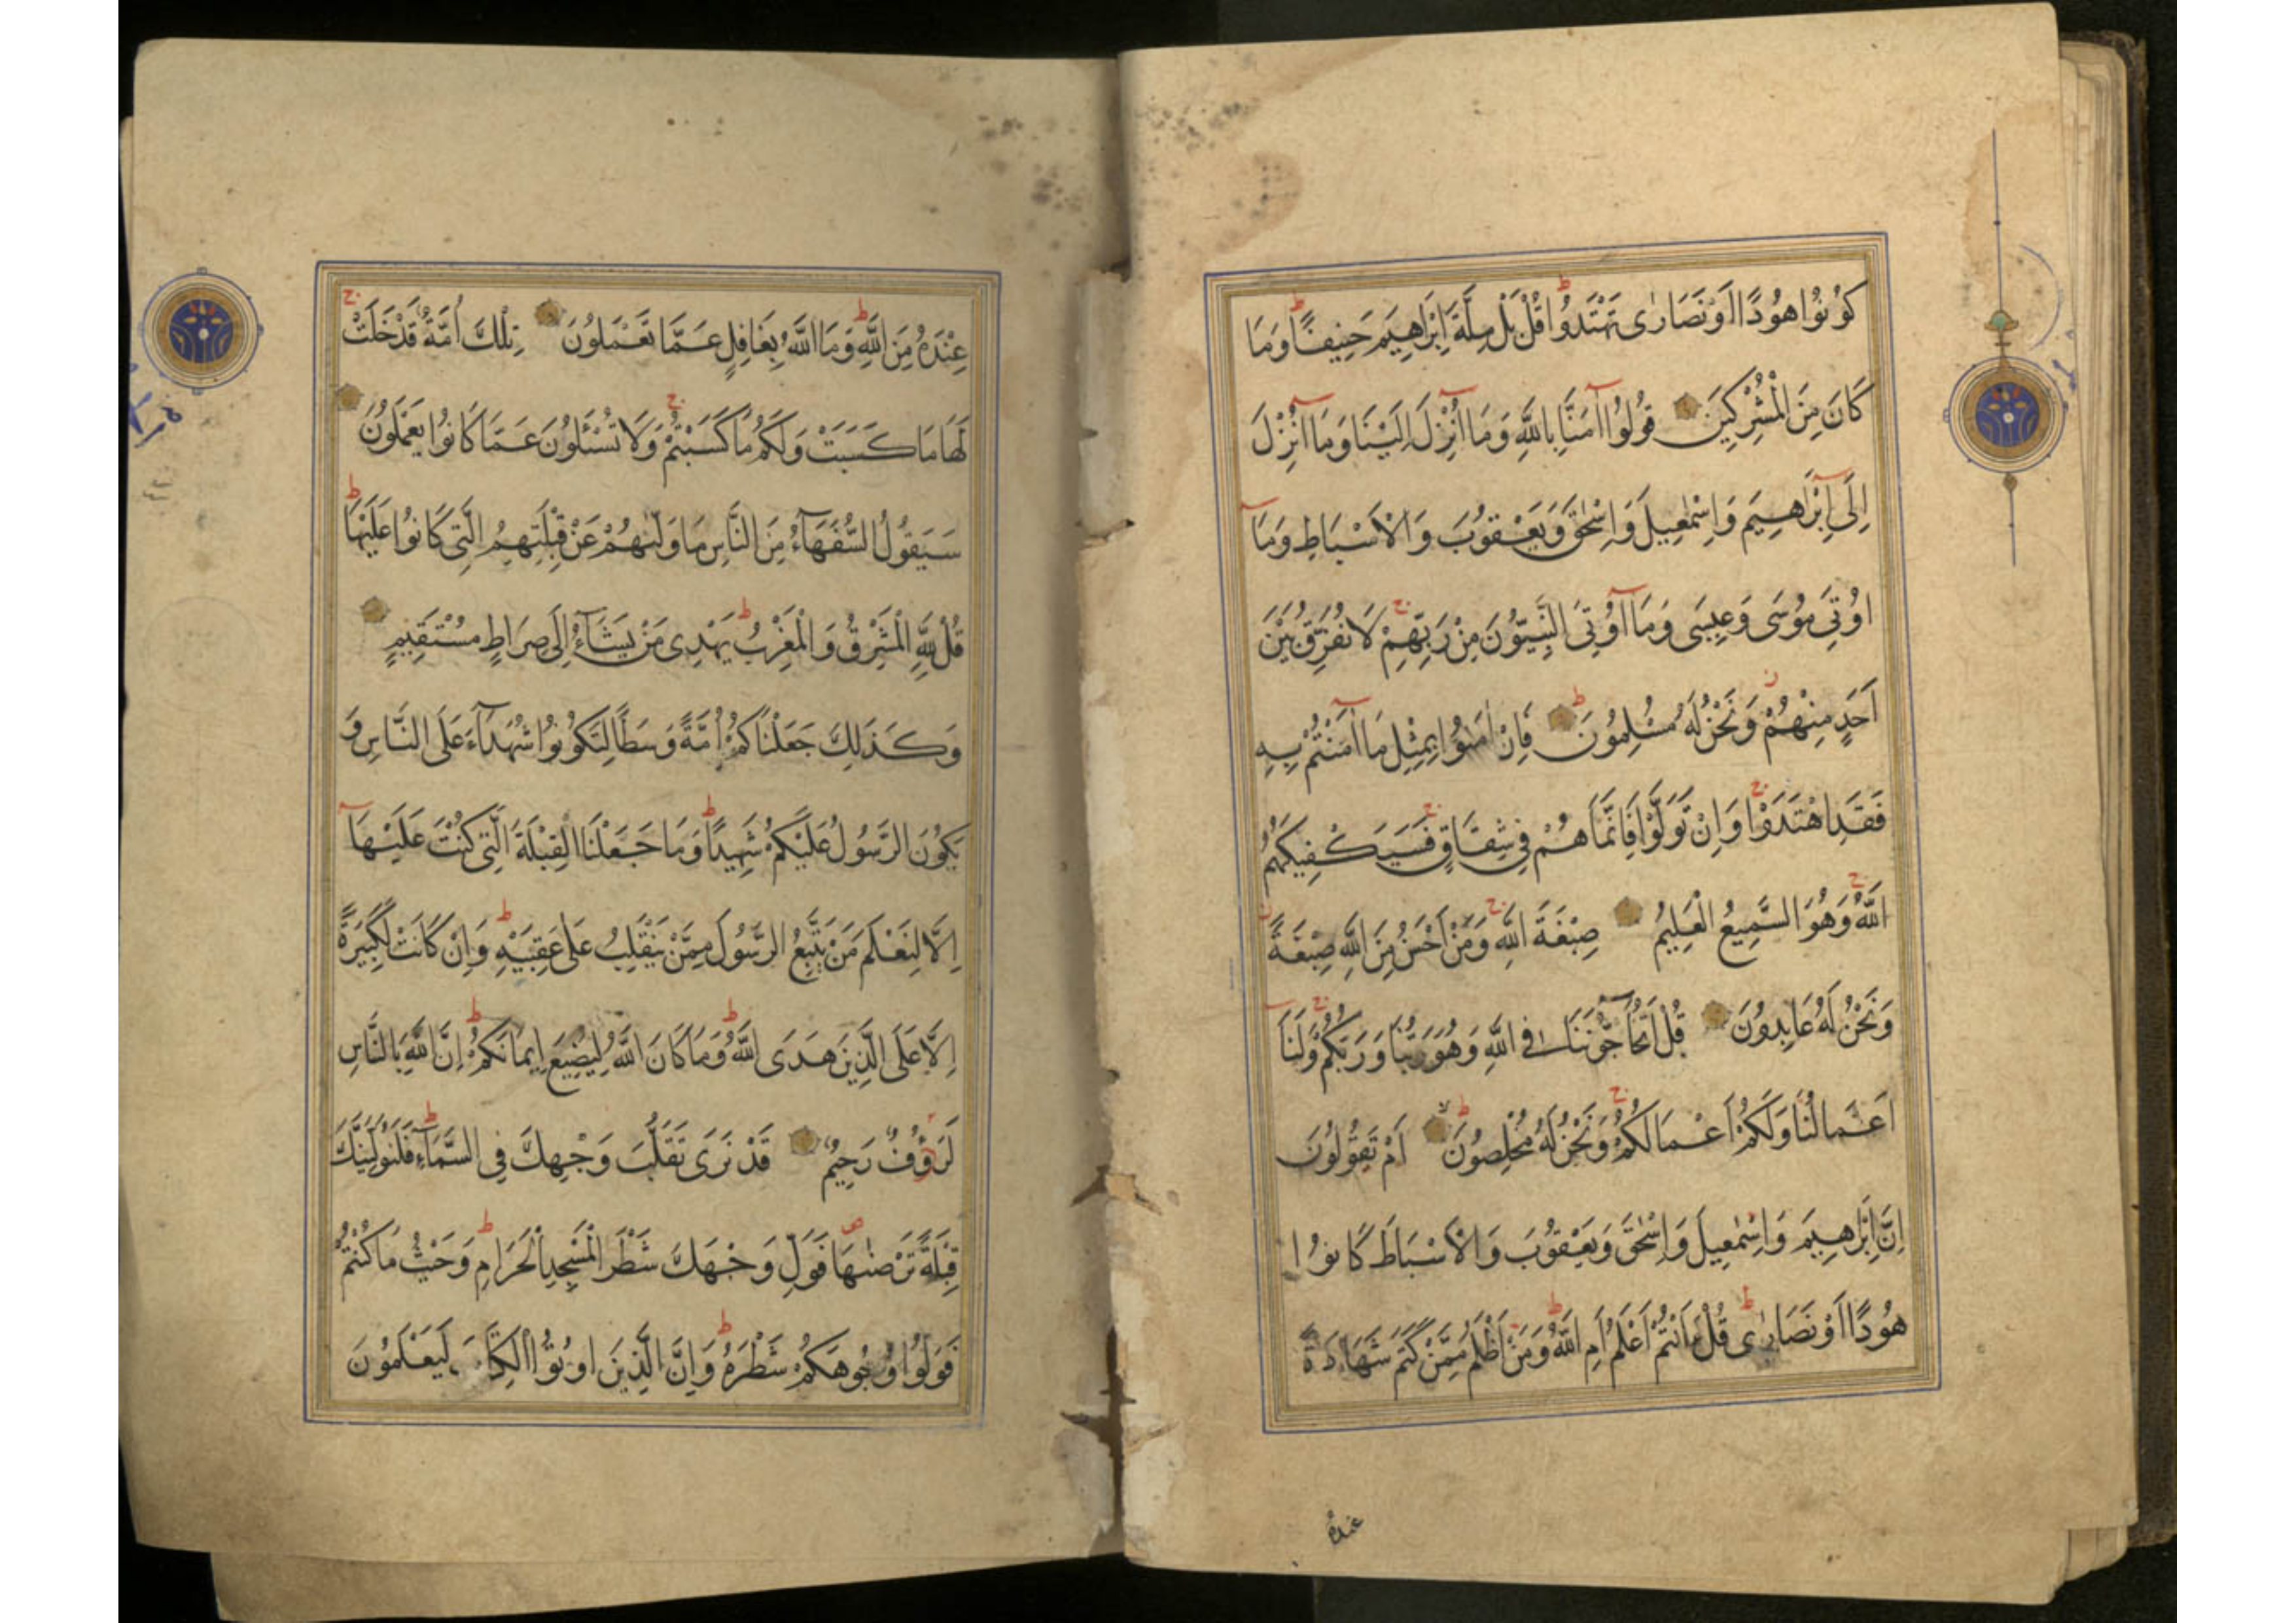 كُونُوا هُودًا اَوْ نَصَارٰى تَهْتَدُوا قُلْ بَلْ مِلَّةَ اِبْرَاهِيمَ حَنِيفًا وَمَا
كَانَ مِنَ الْمُشْرِكِينَ قُولُوا آمَنَّا بِاللّٰهِ وَمَا اُنْزِلَ اِلَيْنَا وَمَا اُنْزِلَ
اِلَى اِبْرَاهِيمَ وَاِسْمٰعِيلَ وَاِسْحٰقَ وَيَعْقُوبَ وَالْاَسْبَاطِ وَمَا
اُوتِيَ مُوسَى وَعِيسَى وَمَا اُوتِيَ النَّبِيُّونَ مِنْ رَبِّهِمْ لَا نُفَرِّقُ بَيْنَ
اَحَدٍ مِنْهُمْ وَنَحْنُ لَهُ مُسْلِمُونَ فَاِنْ اٰمَنُوا بِمِثْلِ مَا اٰمَنْتُمْ بِهِ
فَقَدِ اهْتَدَوْا وَاِنْ تَوَلَّوْا فَاِنَّمَا هُمْ فِي شِقَاقٍ فَسَيَكْفِيكَهُمُ
اللّٰهُ وَهُوَ السَّمِيعُ الْعَلِيمُ صِبْغَةَ اللّٰهِ وَمَنْ اَحْسَنُ مِنَ اللّٰهِ صِبْغَةً
وَنَحْنُ لَهُ عَابِدُونَ قُلْ اَتُحَاجُّونَنَا فِي اللّٰهِ وَهُوَ رَبُّنَا وَرَبُّكُمْ وَلَنَا
اَعْمَالُنَا وَلَكُمْ اَعْمَالُكُمْ وَنَحْنُ لَهُ مُخْلِصُونَ اَمْ تَقُولُونَ
اِنَّ اِبْرٰهِيمَ وَاِسْمٰعِيلَ وَاِسْحٰقَ وَيَعْقُوبَ وَالْاَسْبَاطَ كَانُوا
هُودًا اَوْ نَصَارٰى قُلْ ءَاَنْتُمْ اَعْلَمُ اَمِ اللّٰهُ وَمَنْ اَظْلَمُ مِمَّنْ كَتَمَ شَهَادَةً
عنده
عِنْدَهُ مِنَ اللّٰهِ وَمَا اللّٰهُ بِغَافِلٍ عَمَّا تَعْمَلُونَ تِلْكَ اُمَّةٌ قَدْ خَلَتْ
لَهَا مَا كَسَبَتْ وَلَكُمْ مَا كَسَبْتُمْ وَلَا تُسْئَلُونَ عَمَّا كَانُوا يَعْمَلُونَ
سَيَقُولُ السُّفَهَآءُ مِنَ النَّاسِ مَا وَلّٰىهُمْ عَنْ قِبْلَتِهِمُ الَّتِي كَانُوا عَلَيْهَا
قُلْ لِلّٰهِ الْمَشْرِقُ وَالْمَغْرِبُ يَهْدِي مَنْ يَشَآءُ اِلَى صِرَاطٍ مُسْتَقِيمٍ
وَكَذَلِكَ جَعَلْنَاكُمْ اُمَّةً وَسَطًا لِتَكُونُوا شُهَدَآءَ عَلَى النَّاسِ وَ
يَكُونَ الرَّسُولُ عَلَيْكُمْ شَهِيدًا وَمَا جَعَلْنَا الْقِبْلَةَ الَّتِي كُنْتَ عَلَيْهَا
اِلَّا لِنَعْلَمَ مَنْ يَتَّبِعُ الرَّسُولَ مِمَّنْ يَنْقَلِبُ عَلَى عَقِبَيْهِ وَاِنْ كَانَتْ لَكَبِيرَةً
اِلَّا عَلَى الَّذِينَ هَدَى اللّٰهُ وَمَا كَانَ اللّٰهُ لِيُضِيعَ اِيمَانَكُمْ اِنَّ اللّٰهَ بِالنَّاسِ
لَرَؤُفٌ رَحِيمٌ قَدْ نَرَى تَقَلُّبَ وَجْهِكَ فِي السَّمَآءِ فَلَنُوَلِّيَنَّكَ
قِبْلَةً تَرْضٰىهَا فَوَلِّ وَجْهَكَ شَطْرَ الْمَسْجِدِ الْحَرَامِ وَحَيْثُ مَا كُنْتُمْ
فَوَلُّوا وُجُوهَكُمْ شَطْرَهُ وَاِنَّ الَّذِينَ اُوتُوا الْكِتَابَ لَيَعْلَمُونَ